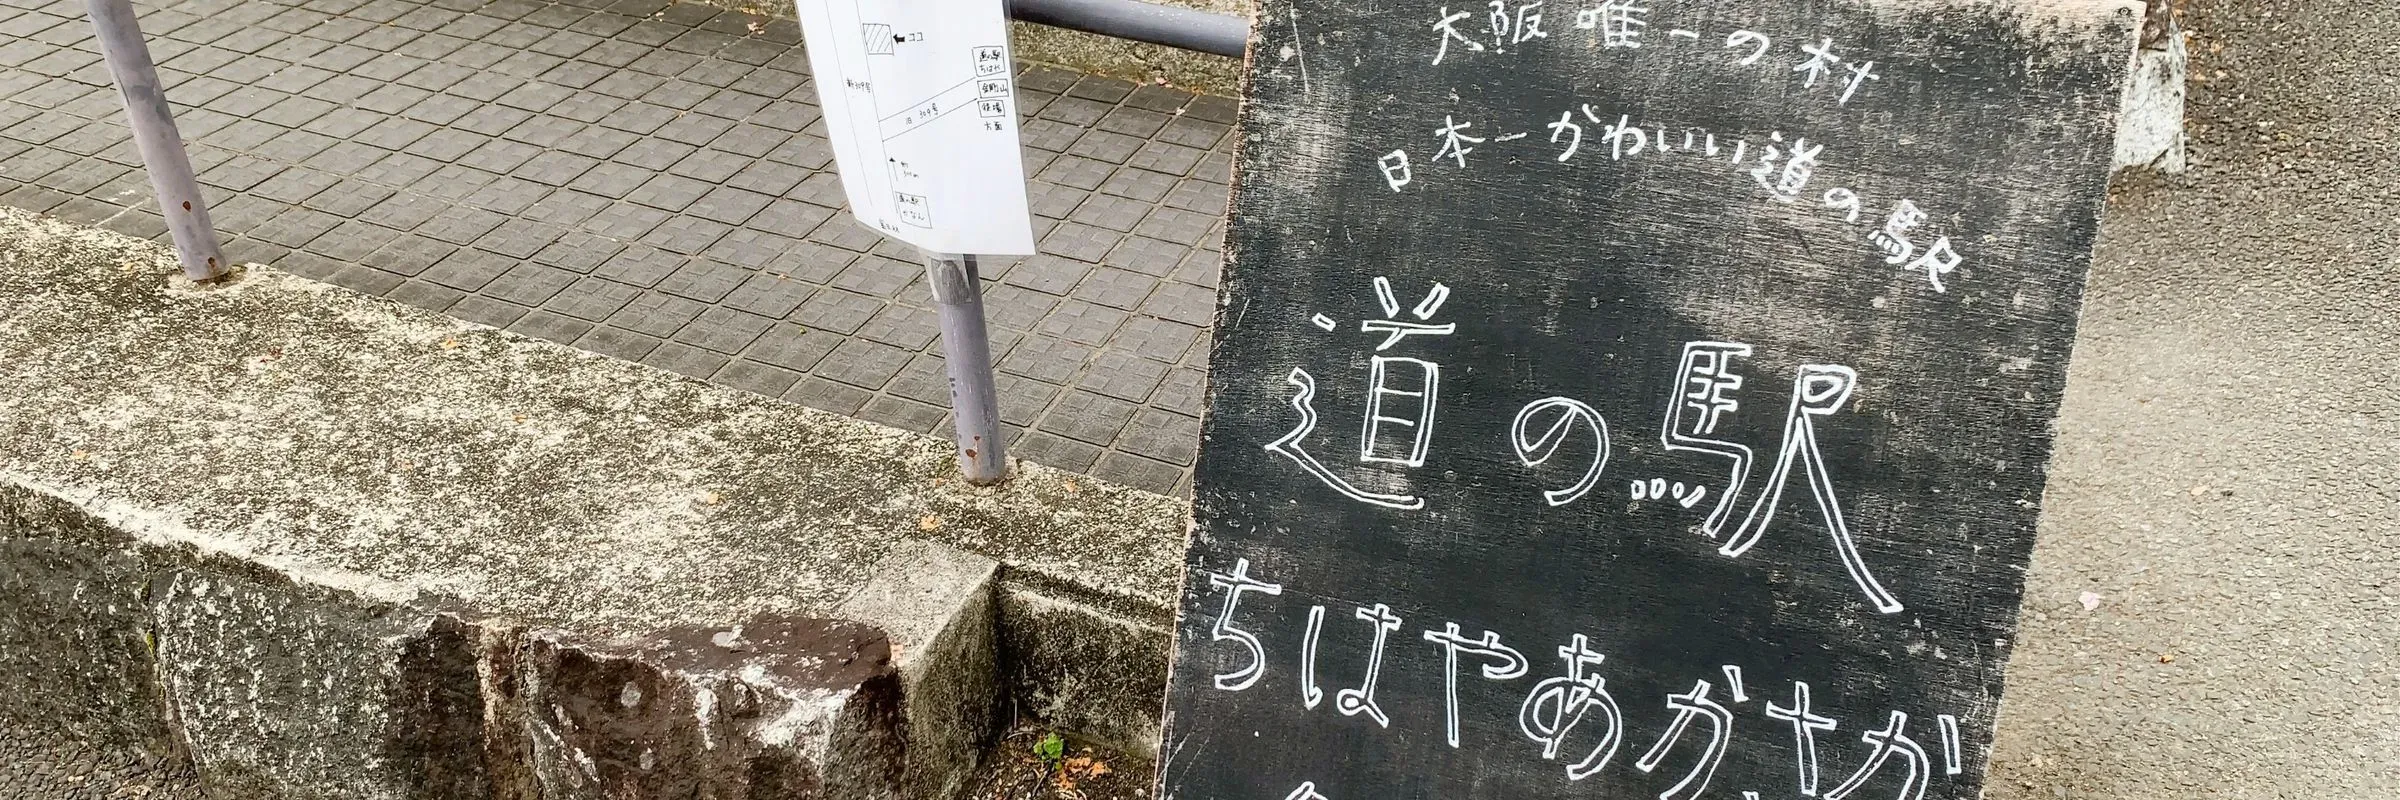 ココ
新309号
道の駅
ちはや
金剛山
役場
方面
旧 309号
約
300m
道の駅
かなん
大阪唯一の村
日本一かわいい道の駅
道の駅
ちはやあかさか